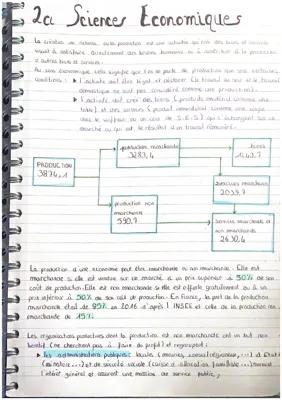 2a Sciences Economiques
La création de richesse, ou la production est une activité qui crée des biens et services
visant à satisfaire directement des besoins humains ou à contribuer à la production
d'autres biens et services.
Au sens économique cela signifie que l'on ne parle de production que sous certaines
conditions : l'activité doit être légal et déclarer (le travail au noir et le travail
domestique ne sont pas considéré comme une production).
▶ l'activité doit créer des biens (produits matériel comme une
table) et des services (produit immatériel comme une
ou un cours de S.E.S) qui s'échangent sur un
marché ou qui est le résultat d'un travail rémunéré.
production marchande
3283,4
biens
1243,7
PRODUCTION
3874,1
services marchands
2039,7
production non
marchande
590,7
Services marchands et
non marchands
2630,4
La production d'une économie peut être marchande ou non marchande. Elle est
marchande si elle est vendue sur un marché à un prix supérieur à 50% de son
coût de production. Elle est non marchande si elle est offerte gratuitement ou à un
prix inférieur à 50% de son coût de production. En France, la part de la production
marchande était de 85% en 2016 d'après l'INSEE et celle de la production non
marchande de 15%.
Les organisations productives dont la production est non marchande ont un but non
lucratif (ne cherchent pas à faire du profil) et regroupent :
▶ les administrations publiques : locales (mairies, conseil régionaux, ...) d'Etat
(ministère ...) et de sécurité sociale (caisse d'allocation familiale ...) servent
l'intérêt général et assurent une mission de service public,